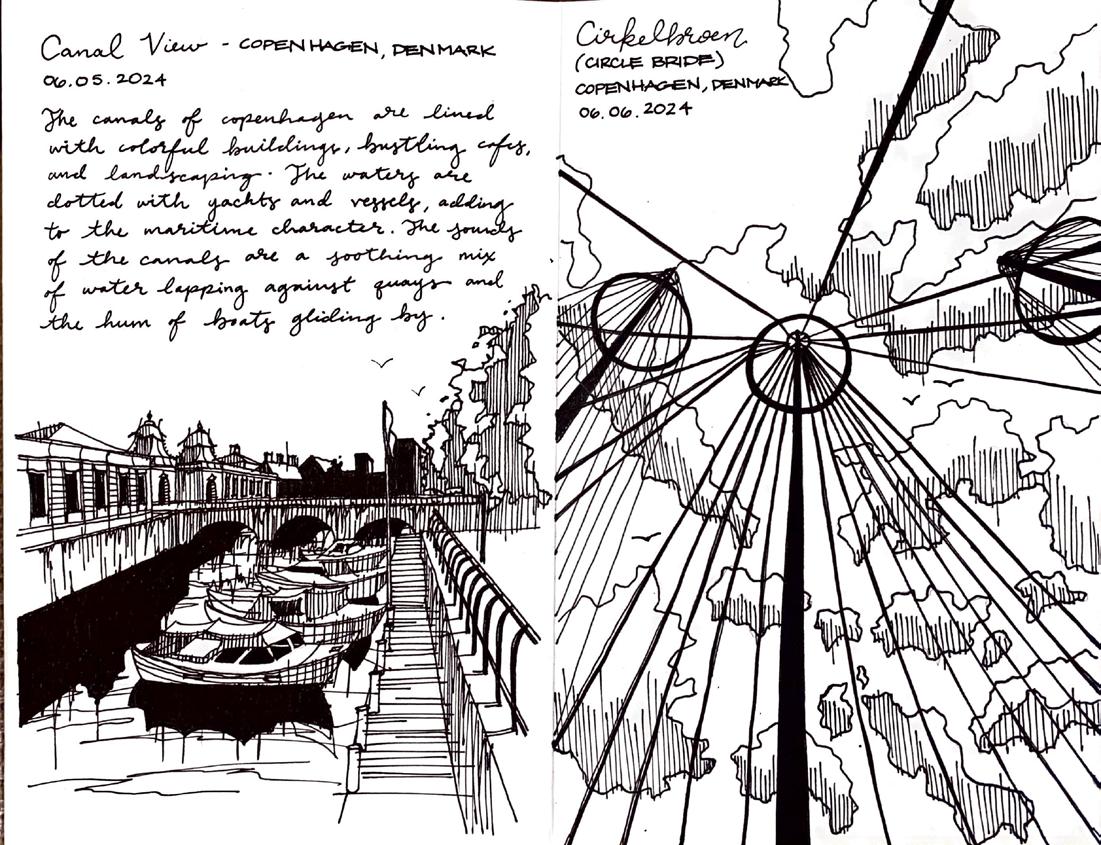 Canal View - COPENHAGEN, DENMARK
06.05.2024
The canals of copenhagen are lined
with colorful buildings, bustling cafes,
and landscaping. The waters are
dotted with yachts and vessels, adding
to the maritime character. The sounds
of the canals are a soothing mix
of water lapping against quays and
the hum of boats gliding by.
Cirkelbroen
(CIRCLE BRIDE)
COPENHAGEN, DENMARK
06.06.2024